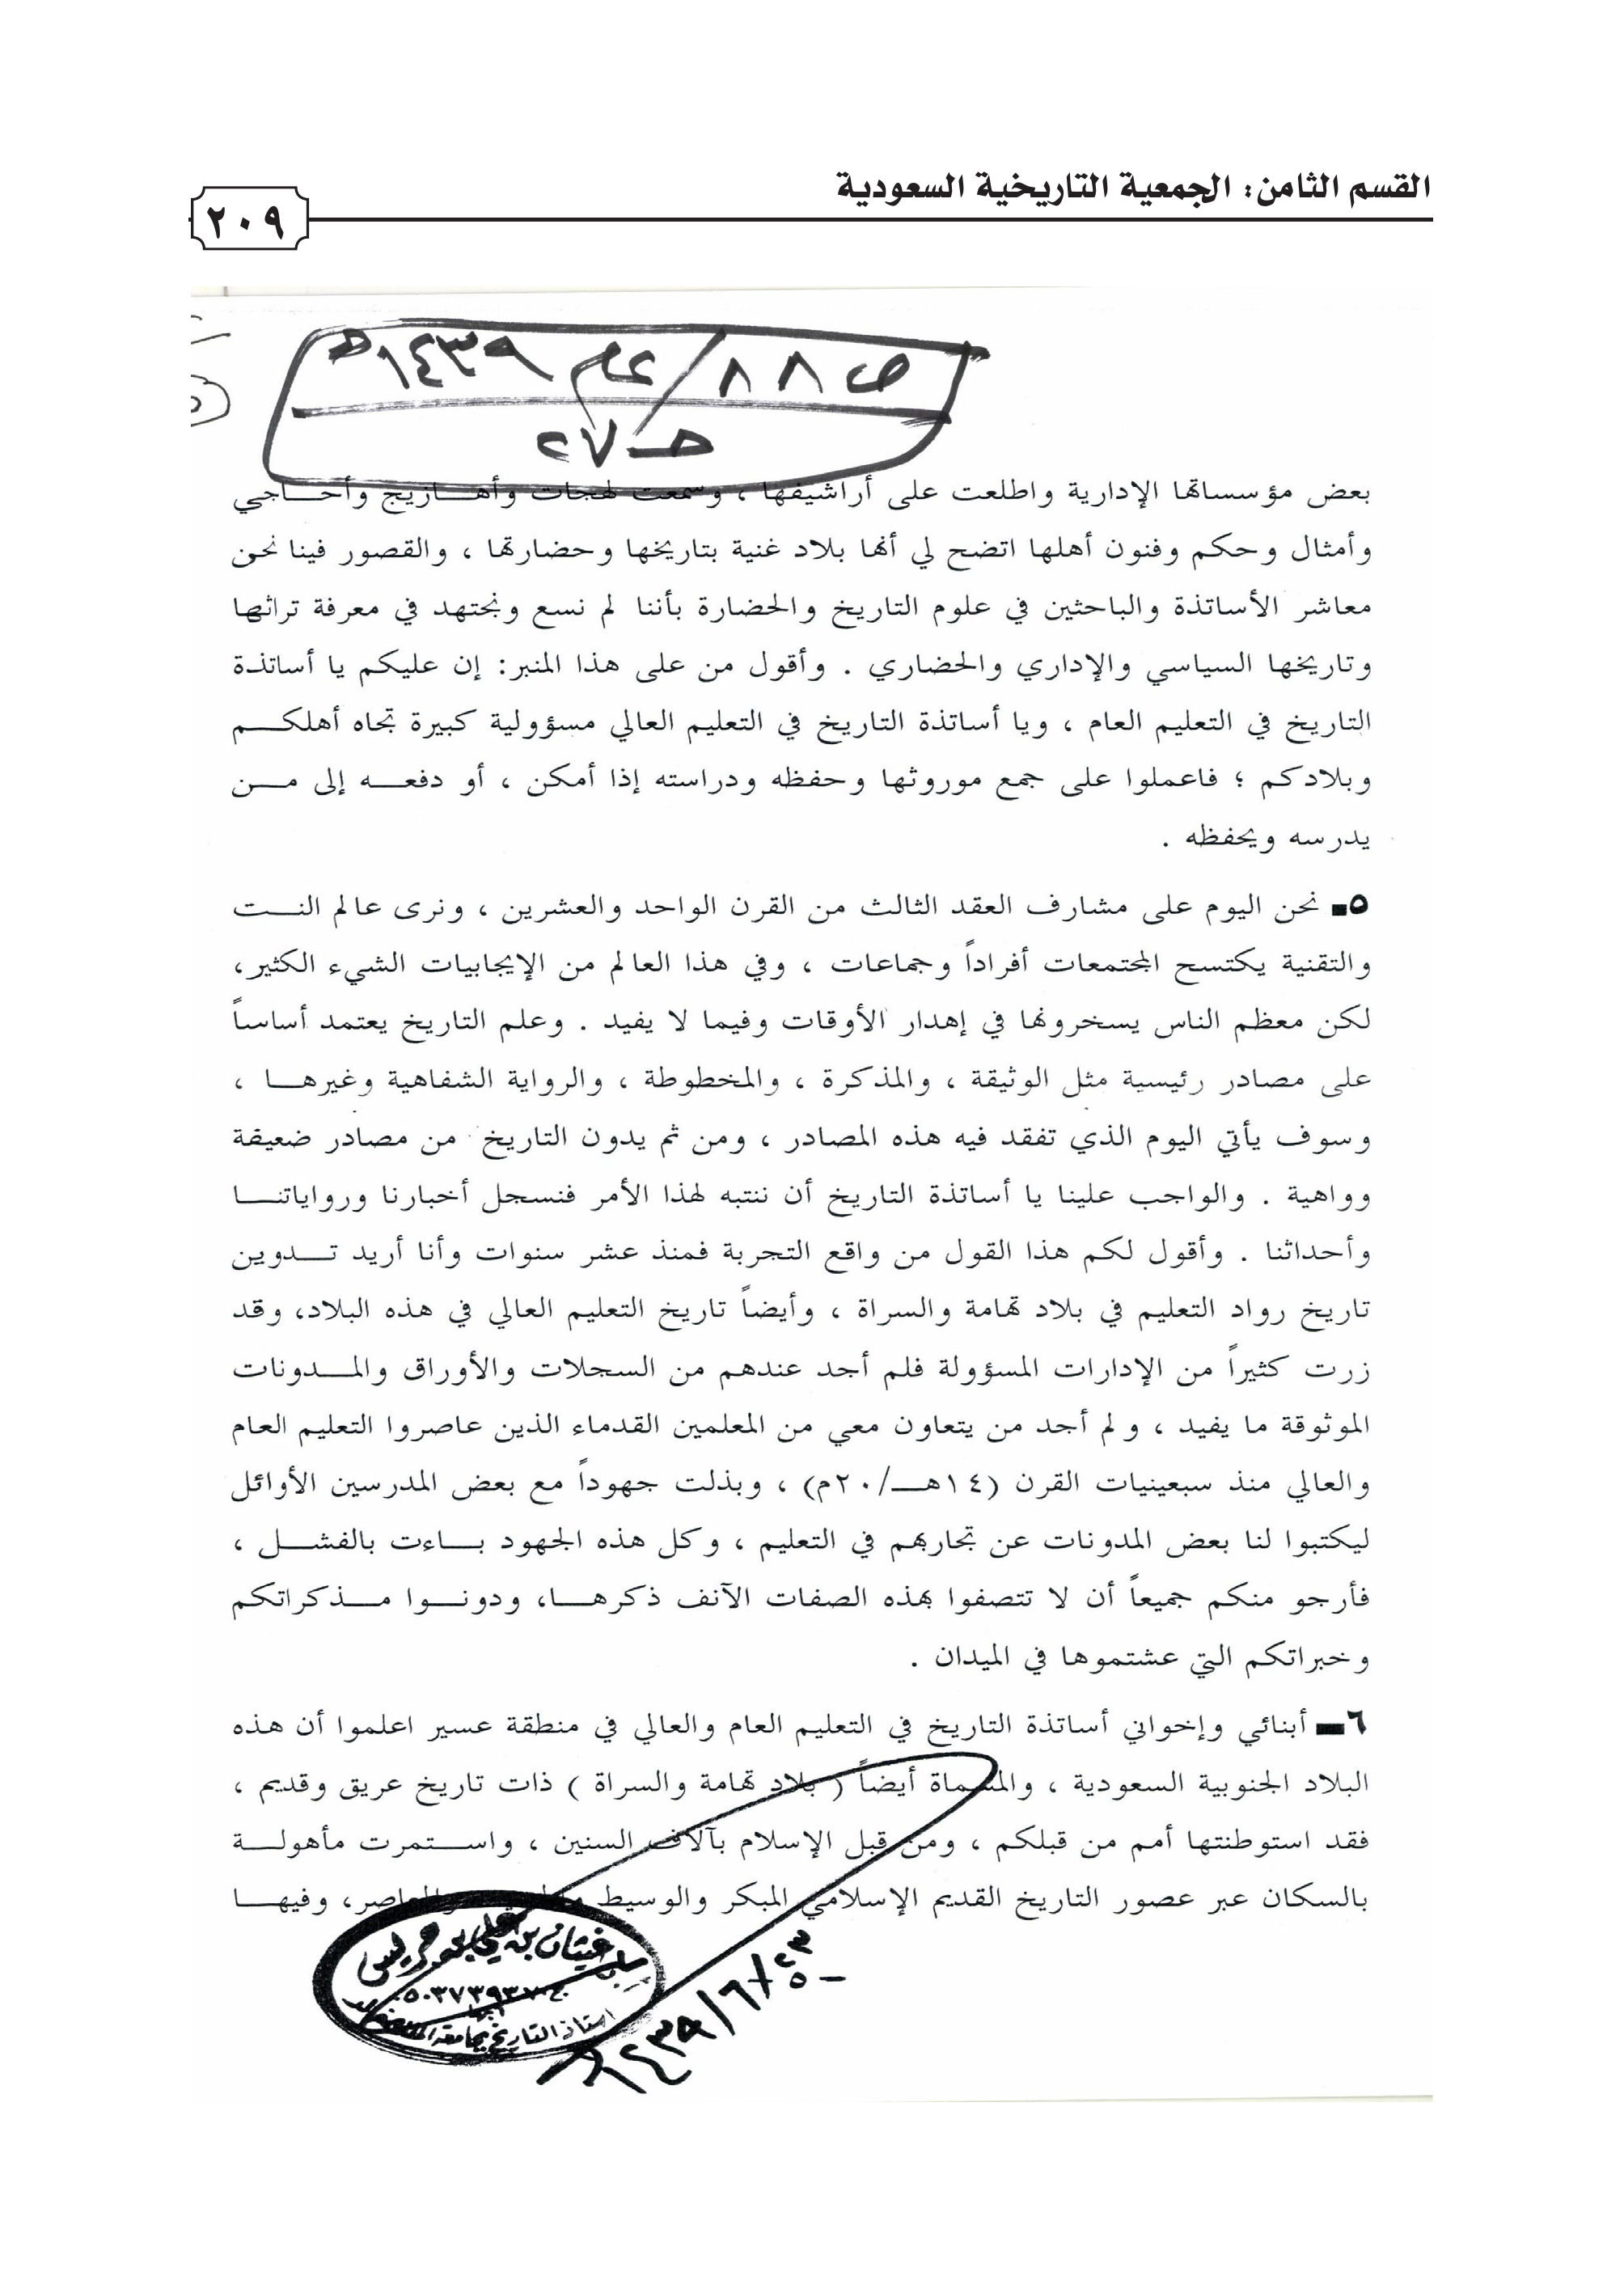 القسم الثامن: الجمعية التاريخية السعودية
٢٠٩
ص ٨٨ / عام ١٤٣٩هـ
حـ ٢٧
بعض مؤسساتها الإدارية واطلعت على أراشيفها ، وسمعت لهجات وأهـــازيج وأحـــاجي
وأمثال وحكم وفنون أهلها اتضح لي أنها بلاد غنية بتاريخها وحضارتها ، والقصور فينا نحن
معاشر الأساتذة والباحثين في علوم التاريخ والحضارة بأننا لم نسع ونجتهد في معرفة تراثها
وتاريخها السياسي والإداري والحضاري . وأقول من على هذا المنبر: إن عليكم يا أساتذة
التاريخ في التعليم العام ، ويا أساتذة التاريخ في التعليم العالي مسؤولية كبيرة تجاه أهلكـــم
وبلادكم ؛ فاعملوا على جمع موروثها وحفظه ودراسته إذا أمكن ، أو دفعـــه إلى مـــن
يدرسه ويحفظه .
٥ـ نحن اليوم على مشارف العقد الثالث من القرن الواحد والعشرين ، ونرى عالم النـــت
والتقنية يكتسح المجتمعات أفراداً وجماعات ، وفي هذا العالم من الإيجابيات الشيء الكثير،
لكن معظم الناس يسخرونها في إهدار الأوقات وفيما لا يفيد . وعلم التاريخ يعتمد أساساً
على مصادر رئيسية مثل الوثيقة ، والمذكرة ، والمخطوطة ، والرواية الشفاهية وغيرهـــا ،
وسوف يأتي اليوم الذي تفقد فيه هذه المصادر ، ومن ثم يدون التاريخ من مصادر ضعيفة
وواهية . والواجب علينا يا أساتذة التاريخ أن ننتبه لهذا الأمر فنسجل أخبارنا ورواياتنـــا
وأحداثنا . وأقول لكم هذا القول من واقع التجربة فمنذ عشر سنوات وأنا أريد تـــدوين
تاريخ رواد التعليم في بلاد تهامة والسراة ، وأيضاً تاريخ التعليم العالي في هذه البلاد، وقد
زرت كثيراً من الإدارات المسؤولة فلم أجد عندهم من السجلات والأوراق والمـــدونات
الموثوقة ما يفيد ، ولم أجد من يتعاون معي من المعلمين القدماء الذين عاصروا التعليم العام
والعالي منذ سبعينيات القرن (١٤هـــ/٢٠م) ، وبذلت جهوداً مع بعض المدرسين الأوائل
ليكتبوا لنا بعض المدونات عن تجاربهم في التعليم ، وكل هذه الجهود بـــاءت بالفشـــل ،
فأرجو منكم جميعاً أن لا تتصفوا بهذه الصفات الآنف ذكرهـــا، ودونـــوا مـــذكراتكم
وخبراتكم التي عشتموها في الميدان .
٦ـ أبنائي وإخواني أساتذة التاريخ في التعليم العام والعالي في منطقة عسير اعلموا أن هذه
البلاد الجنوبية السعودية ، والمسماة أيضاً ( بلاد تهامة والسراة ) ذات تاريخ عريق وقديم ،
فقد استوطنتها أمم من قبلكم ، ومن قبل الإسلام بآلاف السنين ، واســـتمرت مأهولـــة
بالسكان عبر عصور التاريخ القديم الإسلامي المبكر والوسيط والمعاصر، وفيهـــا
غيثان بن علي بن جريس
أبها
أستاذ التاريخ بجامعة الملك خالد
١٤٣٩/٦/